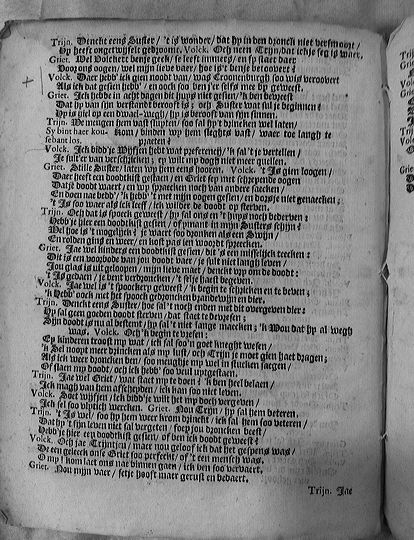 Trijn. Denckt eens Suster / 't is wonder / dat hy in den dronck niet versmoort /
Hy heeft ongetwijfelt gedroomt. Volck. Och neen Trijn / dat ickje seg is waer,
Griet. Wel Volckert benje geck / se leeft immers / en sy staet daer
Voor ons oogen / wel mijn lieve vaer / hoe is't benje betoovert?
Volck. Daer heb' ick gien noodt van / was Croonenburgh soo wis verovert
Als ick dat gesien hebb' / en oock soo ben j'er selfs mee by geweest.
Griet. Ick hebbe in acht dagen dit huys niet gesien / 'k ben bevreest
Dat hy van sijn verstandt berooft is; och Suster wat sal je beginnen?
Hy is hiel op een dwael-wegh / hy is berooft van sijn sinnen.
Trijn. We mengen hem vast sluyten / soo sal hy 't drincken wel laten /
Sy bint haer kou- kom / binden wy hem sleghts vast / waer toe langh te
sebant los. praeten?
Volck. Ick bidd'je Wijfjen hebt wat preferency / 'k sal 't je vertellen /
Je sult'er van verschricken; ey wilt my dogh niet meer quellen.
Griet. Stille Suster / laten wy hem eens hooren. Volck. 't Is gien loogen /
Daer heeft een doodtkist gestaen / en Griet sey met schreyende oogen
Datje doodt waert / en wy spraecken noch van andere saecken /
En doen nae bedd' / 'k hebb' 't met mijn oogen gesien /
't Is soo waer als ick leef / ick wilder de doodt op sterven.
Trijn. Och dat is spoeck geweest / hy sal ons en 't huys noch bederven:
Hebb'je hier een doodtkist gesien / of ymant in mijn Susters schijn?
Wel hoe is 't mogelijck? je waert soo droncken als een Swijn /
En rolden ging en weer / en kost pas een woordt spreecken.
Griet. Jae wel kinders een doodtkist gesien / dit 's een misselijck teecken:
Dit is een voorbode van jou doodt vaer / je sult niet langh leven /
Jou glas is uyt geloopen / mijn lieve maer / denckt vry om de doodt:
't Is gedaen / je bent verdroncken / 't selje haest begeven.
Volck. Jae wel is 't spoockery geweest / 'k begin te schricken en te beven;
'k Hebb' oock met het spoock gedroncken brandewijn en bier.
Trijn. Denckt eens Suster / hoe sal 't noch enden met dit overgeven dier:
Hy sal geen goeden doodt sterven / dat staet te beweenen;
Sijn doodt is nu al bestemt / hy sal 't niet lange maecken; 'k Wou dat hy al wegh
was. Volck. Och 'k begin te vresen:
Ey kinderen troost my wat / ick sal soo'n goet knegtje wesen /
'k Sel noopt meer drincken als my lust / och Trijn je moet gien haet dragen;
Als ick weer droncken ben / soo meughje my wel in stucken saegen /
Of slaen my doodt / och ick hebb' soo veul uytgestaen.
Trijn. Jae wel Griet / wat staet my te doen? 'k ben heel belaen /
Ick magh van hem afscheyden / ick kan soo niet leven.
Volck. Soet wijfjen / ick bidd'je wilt het my doch vergeven /
Ick sel soo olijck weercken. Griet. Nou Trijn / hy sal hem beteren.
Trijn. 't Is wel / soo hy hem weer krom drinckt / ick sal hem soo beteren /
Dat hy 't sijn leven niet sal vergeten / foey jou dronken beest /
Hebb'je hier een doodtkist gesien / of ben ick doodt geweest?
Volck. Och jae Trijntjen / maer nou geloof ick dat het gespens was /
De een geleeck onse Griet soo perfeckt / of 't een mensch was,
O my! kom laet ons nae binnen gaen / ick ben soo vervaert,
Griet. Nou mijn vaer / setje hooft maer gerust en bedaert.
Trijn. Jae